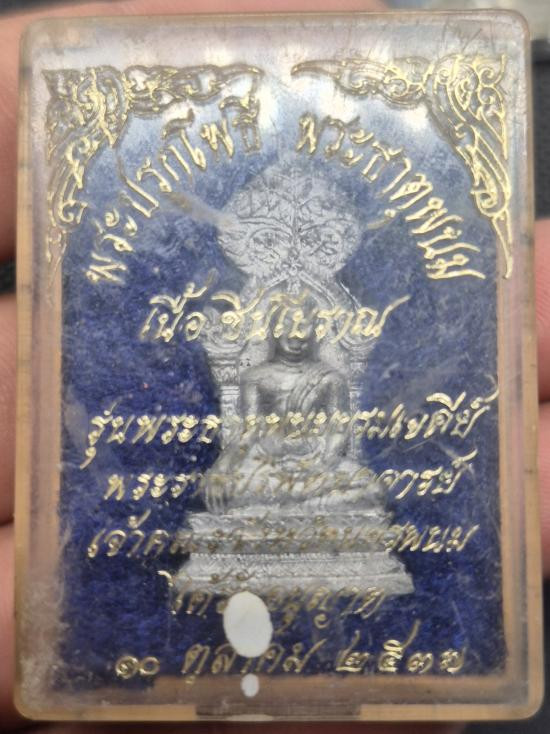 พระปรกโพธิ์ พระธาตุพนม
เนื้อชินโบราณ
รุ่นพระธาตุพนมบรมเจดีย์
เจ้าคณะจังหวัดนครพนม
ได้รับอนุญาต
๑๐ ตุลาคม ๒๕๓๗